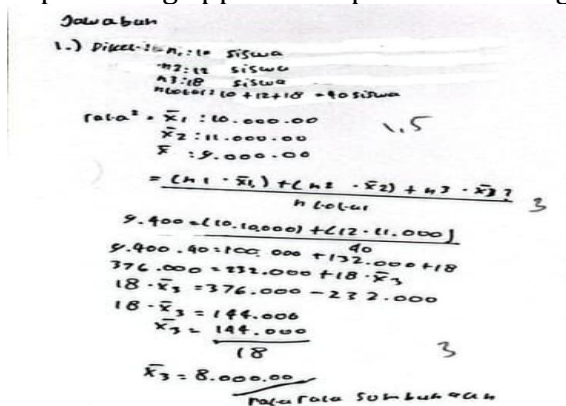 Jawaban
1.) Diket :- n1 : 10 siswa
n2 : 12 siswa
n3 : 18 siswa
n total : 10 + 12 + 18 = 40 siswa
rata² = x̄1 : 10.000.00
1,5
x̄2 : 11.000.00
x̄ : 9.000.00
= (n1 · x̄1) + (n2 · x̄2) + n3 · x̄3?
n total
3
9.400 = (10.10,000) + (12 · 11.000)
40
9.400 . 40 = 100.000 + 132.000 + 18
376.000 = 232.000 + 18 · x̄3
18 · x̄3 = 376.000 - 232.000
18 · x̄3 = 144.000
x̄3 = 144.000
18
3
x̄3 = 8.000.00
rata rata sumbungan